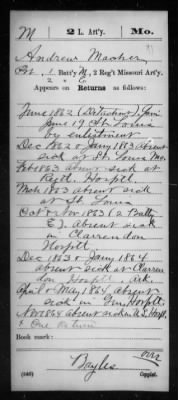 M 2 L. Art'y. Mo.
Andrew Mosher
Pvt, 1 Batt'y M, 2 Reg't Missouri Art'y.
2 " E
Appears on Returns as follows:
June 1862 (Detachment) Join
June 17 St Louis
by enlistment
Dec 1862 & Jany 1863 Absent
sick at St. Louis Mo.
Feb 1863 absent sick at
Regtl. Hospitl
Mch 1863 absent sick
at St. Louis
Oct & Nov 1863 (2 Batty
E). Absent sick
in Clarrendon
Hospitl
Dec 1863 & Jany 1864
absent sick at Clarren-
don Hospitl, Ark.
April & May 1864, absent
sick in Gen Hospitl.
Nov 1864 absent sick in U.S. Hosp.
& One return
Book mark:
Bayles
(546) Copyist.